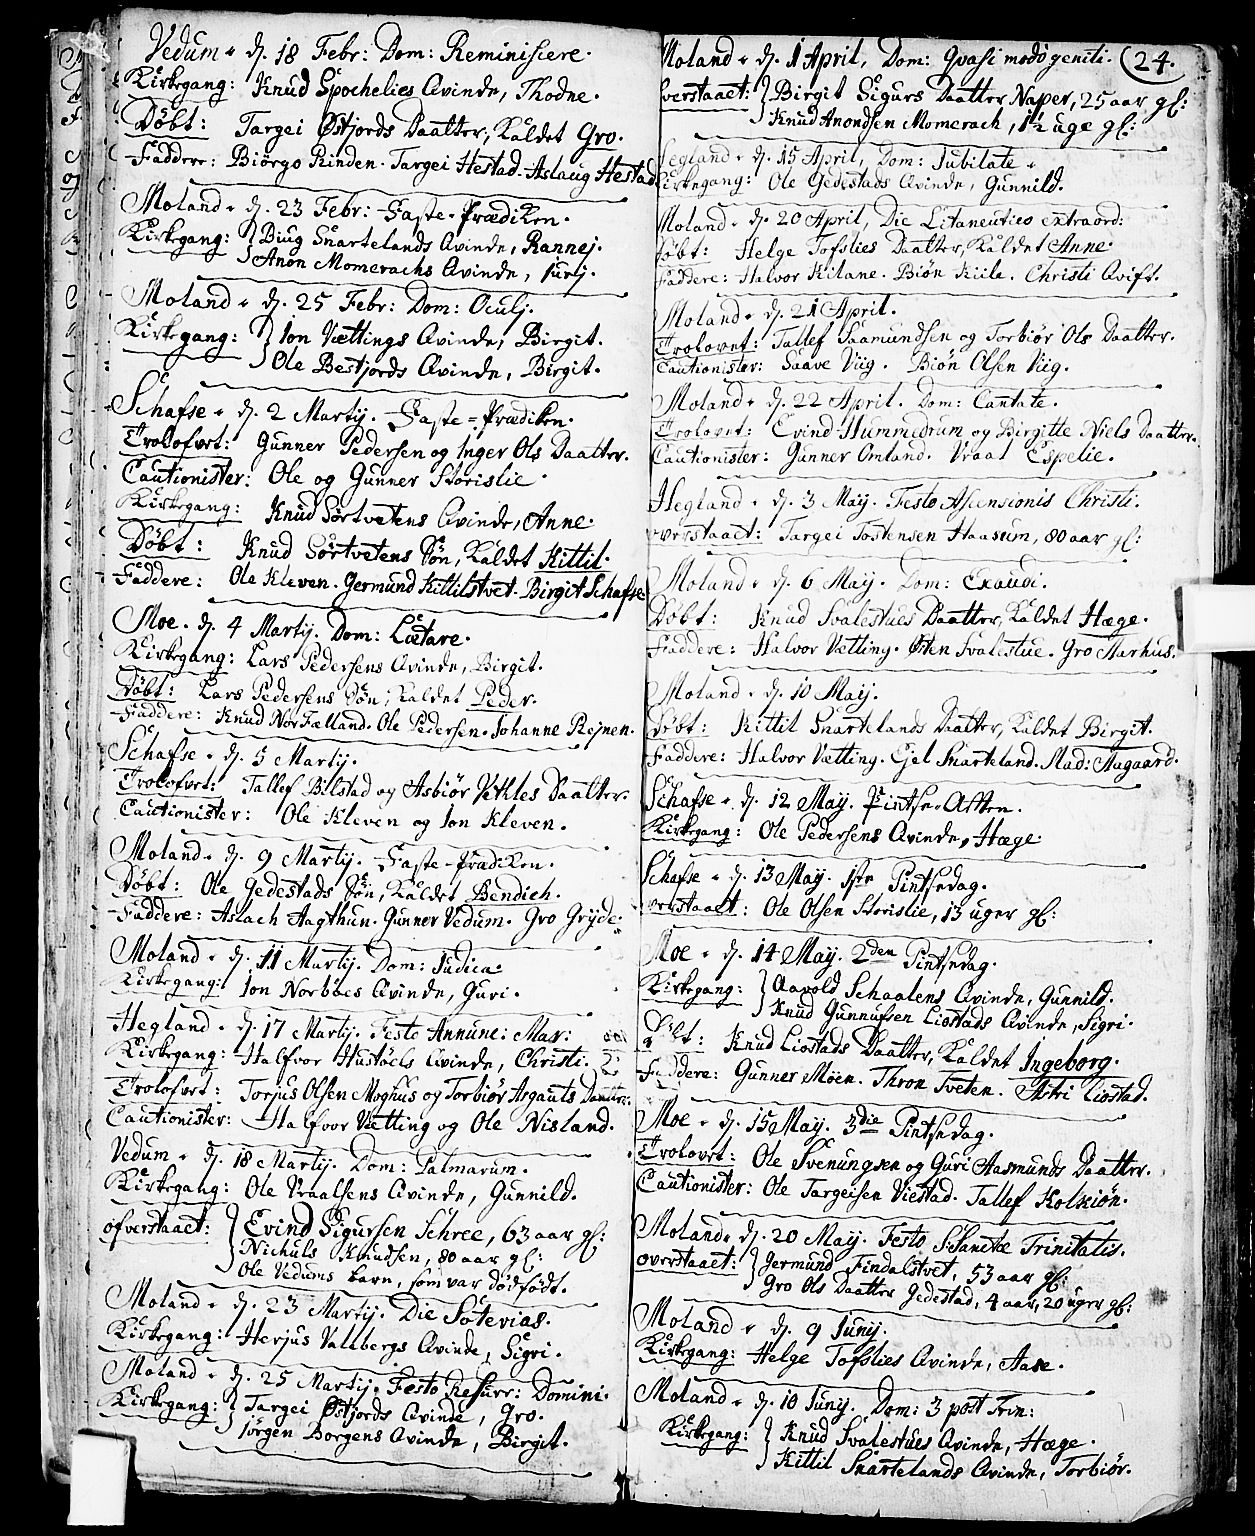 Vedum d. 18 Febr: Dom: Reminisiere.
Kirkegang: Knud Spochelies Qvinde, Thodne.
Døbt: Targei Østjords Daatter, Kaldet Gro.
Faddere: Biørgo Rinden. Targei Hestad. Aslaug Hestad.
Moland d. 23 Febr: Faste-Prædiken.
Kirkegang: Biug Snartelands Qvinde, Rannej.
Anon Momerachs Qvinde, Jurij.
Moland d. 25 Febr: Dom: Oculj.
Kirkegang: Jon Vættings Qvinde, Birgit.
Ole Bestjords Qvinde, Birgit.
Schafse d. 2 Martij. Faste-Prædiken.
Trolofvet: Gunner Pedersen og Inger Ols Daatter.
Cautionister: Ole og Gunner Storislie.
Kirkegang: Knud Sørtvetens Qvinde, Anne.
Døbt: Knud Sørtvetens Søn, Kaldet Kittil.
Faddere: Ole Kleven. Germund Kittilstvet. Birgit Schafse.
Moe. d. 4 Martij. Dom: Lætare.
Kirkegang: Lars Pedersens Qvinde, Birgit.
Døbt: Lars Pedersens Søn, Kaldet Peder.
Faddere: Knud Nor Fælland. Ole Pedersen. Johanne Rejnen.
Schafse d. 5 Martij.
Trolofvet: Tallef Bilstad og Asbiør Vetles Daatter.
Cautionister: Ole Kleven og Jon Kleven.
Moland d. 9 Martij. Faste-Prædiken.
Døbt: Ole Gedestads Søn, Kaldet Bendich.
Faddere: Aslach Aagthun. Gunner Vedum. Gro Gryde.
Moland d. 11 Martij. Dom: Judica.
Kirkegang: Jon Norbøes Qvinde, Guri.
Hegland d. 17 Martij. Festo Annunc: Mar:
Kirkegang: Halfvor Hustøels Qvinde, Christi.
Trolofvet: Torjus Olsen Moghus og Torbiør Asgauts Daatter.
Cautionister: Halfvor Vætting og Ole Nisland.
Vedum d. 18 Martij. Dom: Palmarum.
Kirkegang: Ole Vraalsens Qvinde, Gunnild.
ofverstaaet: Evind Sigursen Schree, 63 aar gl:
Nichuls Knudsen, 80 aar gl:
Ole Vedums barn, som var dødfødt.
Moland d. 23 Martij. Die Soterias.
Kirkegang: Herjus Valbergs Qvinde, Sigri.
Moland d. 25 Martij. Festo Resurr: Domini.
Kirkegang: Targei Østjords Qvinde, Gro.
Jørgen Borgens Qvinde, Birgit.
24.
Moland d. 1 April, Dom: Qvasi modo geniti.
overstaaet: Birgit Sigurs Daatter Naper, 25 aar gl:
Knud Anondsen Momerach, 1½ uge gl:
Hegland d. 15 April, Dom: Jubilate.
Kirkegang: Ole Gedestads Qvinde, Gunnild.
Moland d. 20 April, Die Litaneutico extraord:
Døbt: Helge Tofslies Daatter, Kaldet Anne.
Faddere: Halvor Kilane. Biøn Kiile. Christi Qvift.
Moland d. 21 April.
Trolovet: Tallef Saamundsen og Torbiør Ols Daatter.
Cautionister: Saave Viig. Biøn Olsen Viig.
Moland d. 22 April. Dom: Cantate.
Trolovet: Evind Hummedrum og Birgitte Niels Daatter.
Cautionister: Gunner Omland. Vraal Espelie.
Hegland d. 3 Maij. Festo Ascensionis Christi.
overstaaet: Targei Tostensen Haasum, 80 aar gl:
Moland d. 6 Maij. Dom: Exaudi.
Døbt: Knud Svalestues Daatter, Kaldet Hæge.
Faddere: Halvor Vetting. Østen Svalestue. Gro Aarhus.
Moland d. 10 Maij.
Døbt: Kittil Snartelands Daatter, Kaldet Birgit.
Faddere: Halvor Vætting. Ejel Snarteland. Mad: Aagaard.
Schafse d. 12 Maij. Pintse-Aften.
Kirkegang: Ole Pedersens Qvinde, Hæge.
Schafse d. 13 Maij. 1ste Pintsedag.
overstaaet: Ole Olsen Storislie, 13 uger gl:
Moe d. 14 Maij. 2den Pintsedag.
Kirkegang: Aavold Schaalens Qvinde, Gunnild.
Knud Gunnufsen Liostads Qvinde, Sigri.
Døbt: Knud Liostads Daatter, Kaldet Ingeborg.
Faddere: Gunner Moen. Thron Tveten. Astri Liostad.
Moe d. 15 Maij. 3die Pintsedag.
Trolovet: Ole Svenungsen og Guri Aasmunds Daatter.
Cautionister: Ole Targeisen Viestad. Tallef Kolkiøn.
Moland d. 20 Maij. Festo SSanctæ Trinitatis.
overstaaet: Germund Findalstvet, 53 aar gl:
Gro Ols Daatter Gedestad, 4 aar, 20 uger gl:
Moland d. 9 Junij.
Kirkegang: Helge Tofslies Qvinde, Aase.
Moland d. 10 Junij. Dom: 3 post Trin:
Kirkegang: Knud Svalestues Qvinde, Hæge.
Kittil Snartelands Qvinde, Torbiør.